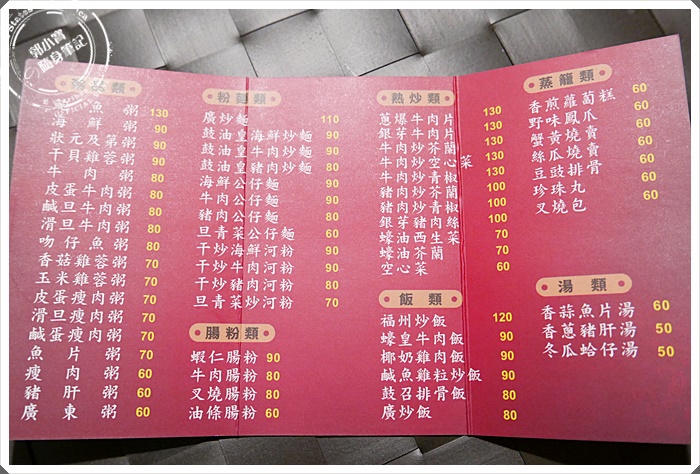 類
魚粥 130
海鮮粥 90
狀元及第粥 90
干貝雞蓉粥 90
牛肉粥 80
皮蛋牛肉粥 80
鹹旦牛肉粥 80
滑旦牛肉粥 80
吻仔魚粥 80
香菇雞蓉粥 70
玉米雞蓉粥 70
皮蛋瘦肉粥 70
滑旦瘦肉粥 70
鹹蛋瘦肉粥 70
魚片粥 70
瘦肉粥 60
豬肝粥 60
廣東粥 60
粉麵類
廣炒麵 110
鼓油皇海鮮炒麵 90
鼓油皇牛肉炒麵 90
鼓油皇豬肉炒麵 80
海鮮公仔麵 90
牛肉公仔麵 80
豬肉公仔麵 80
旦青菜公仔麵 60
干炒海鮮河粉 90
干炒牛肉河粉 90
干炒豬肉河粉 80
旦青菜炒河粉 70
腸粉類
蝦仁腸粉 90
牛肉腸粉 80
叉燒腸粉 80
油條腸粉 60
熱炒類
蔥爆牛肉片 130
銀芽牛肉片 130
牛肉炒芥蘭 100
牛肉炒空心菜 100
牛肉炒青椒 100
豬肉炒芥蘭 100
豬肉炒青椒 100
銀芽豬肉絲 100
蠔油西生菜 70
蠔油芥蘭 70
空心菜 60
飯類
福州炒飯 120
蠔皇牛肉飯 90
椰奶雞肉飯 90
鹹魚雞粒炒飯 90
鼓召排骨飯 80
廣炒飯 80
蒸籠類
香煎蘿蔔糕 60
野味鳳爪 60
蟹黃燒賣 60
絲瓜燒賣 60
豆豉排骨 60
珍珠丸 60
叉燒包 60
湯類
香蒜魚片湯 60
香蔥豬肝湯 50
冬瓜蛤仔湯 50
郭小寶
隨身筆記